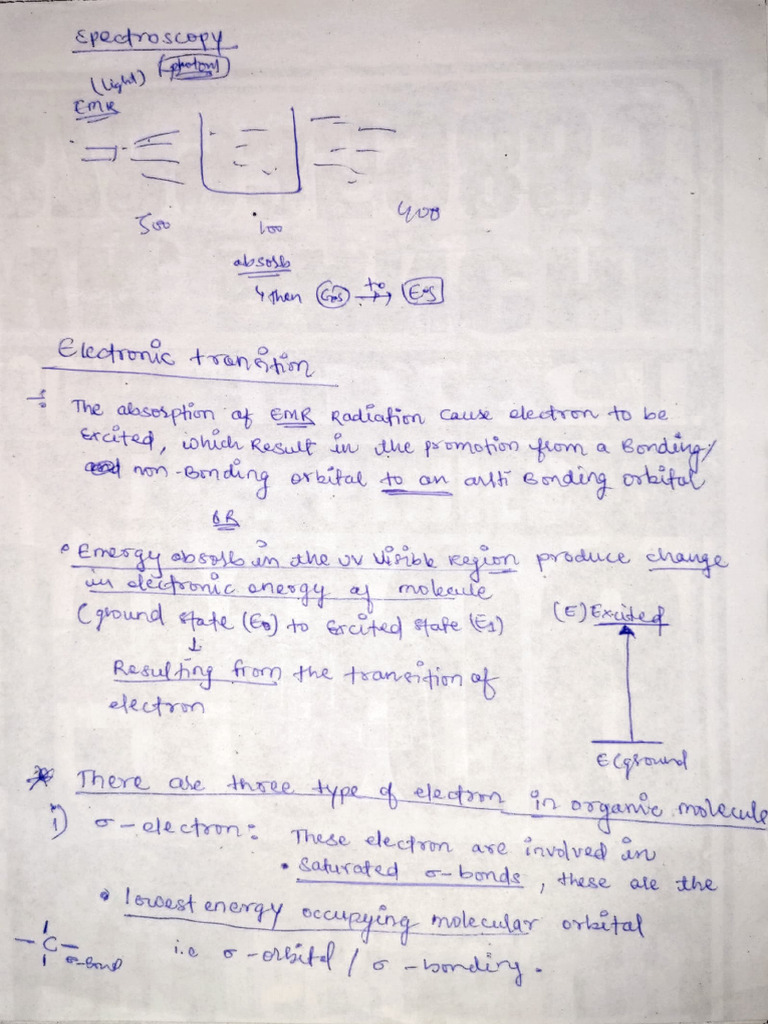 Spectroscopy
(light) (photon)
EMR
500 100 400
absorb
↳ then (GS) to → (ES)
Electronic transition
→ The absorption of EMR Radiation cause electron to be
Excited, which Result in the promotion from a Bonding/
non-Bonding orbital to an anti Bonding orbital
OR
• Energy absorb in the UV Visible region produce change
in electronic energy of molecule
(ground state (E₀) to Excited state (E₁)
(E) Excited
↓
Resulting from the transition of
electron
E(ground
* There are three type of electron in organic molecule
i) σ-electron: These electron are involved in
• saturated σ-bonds, these are the
• lowest energy occupying molecular orbital
-C- σ-bond
i.e σ-orbital / σ-bonding.